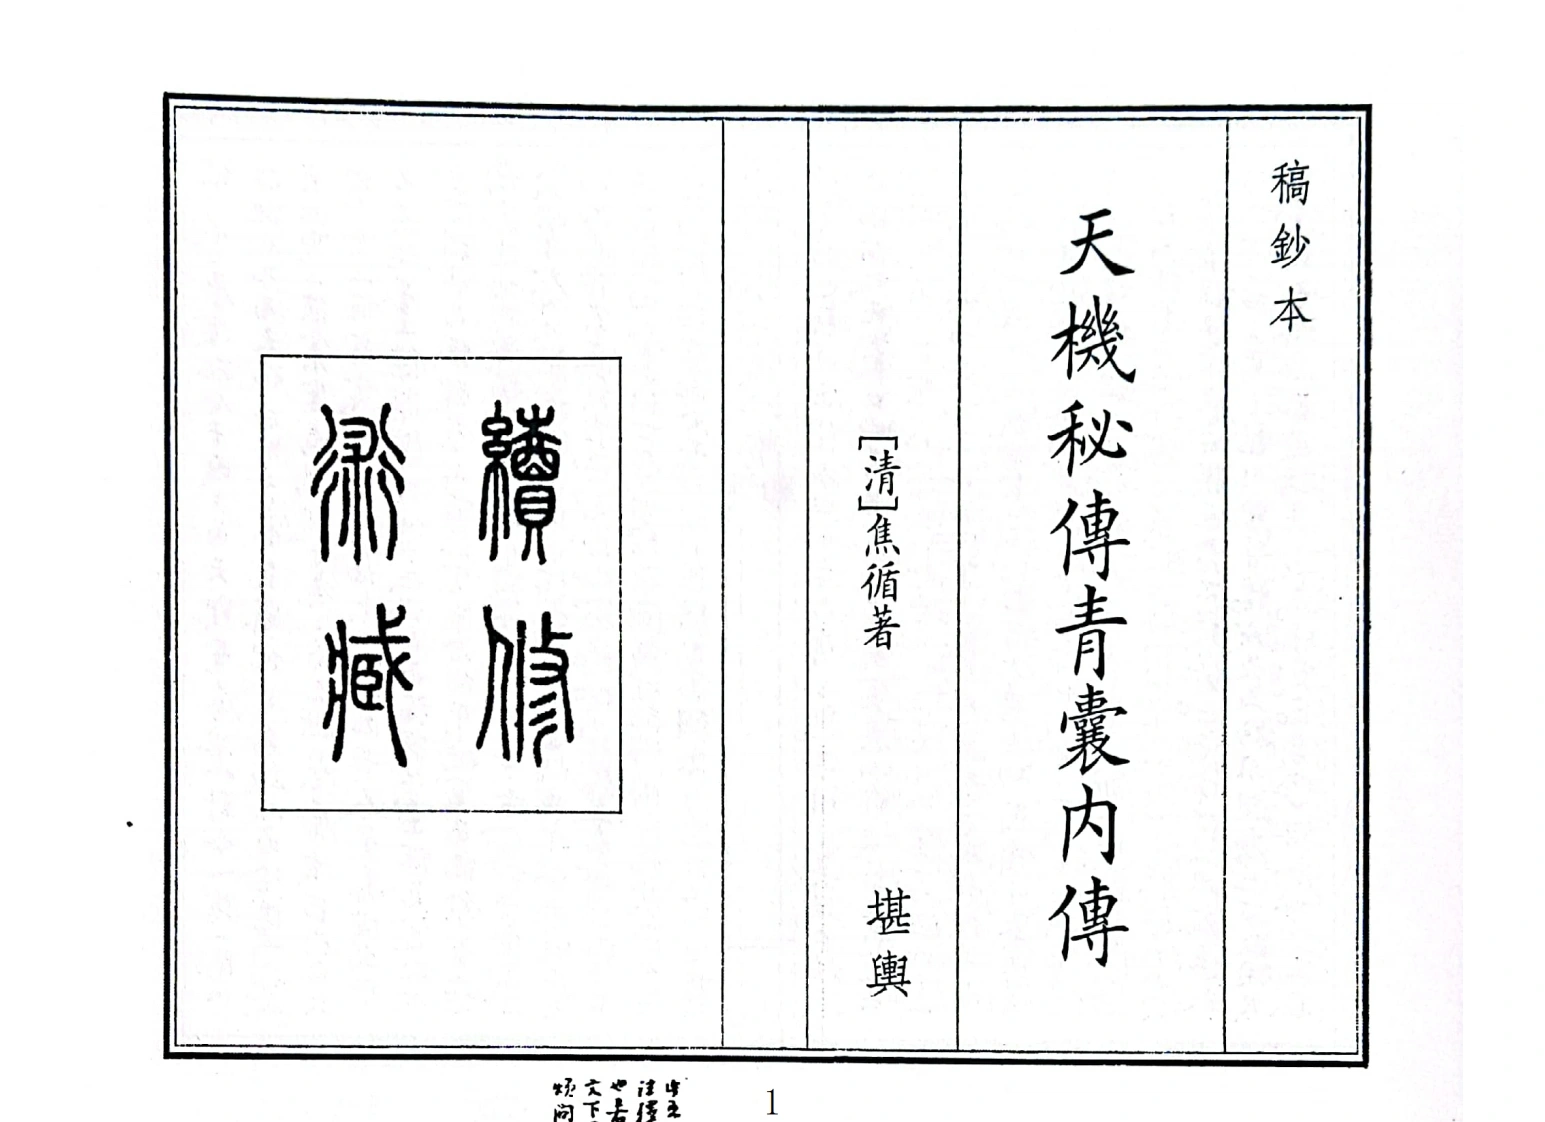 稿鈔本
天機秘傳青囊內傳
[清]焦循著
堪輿
續修
1